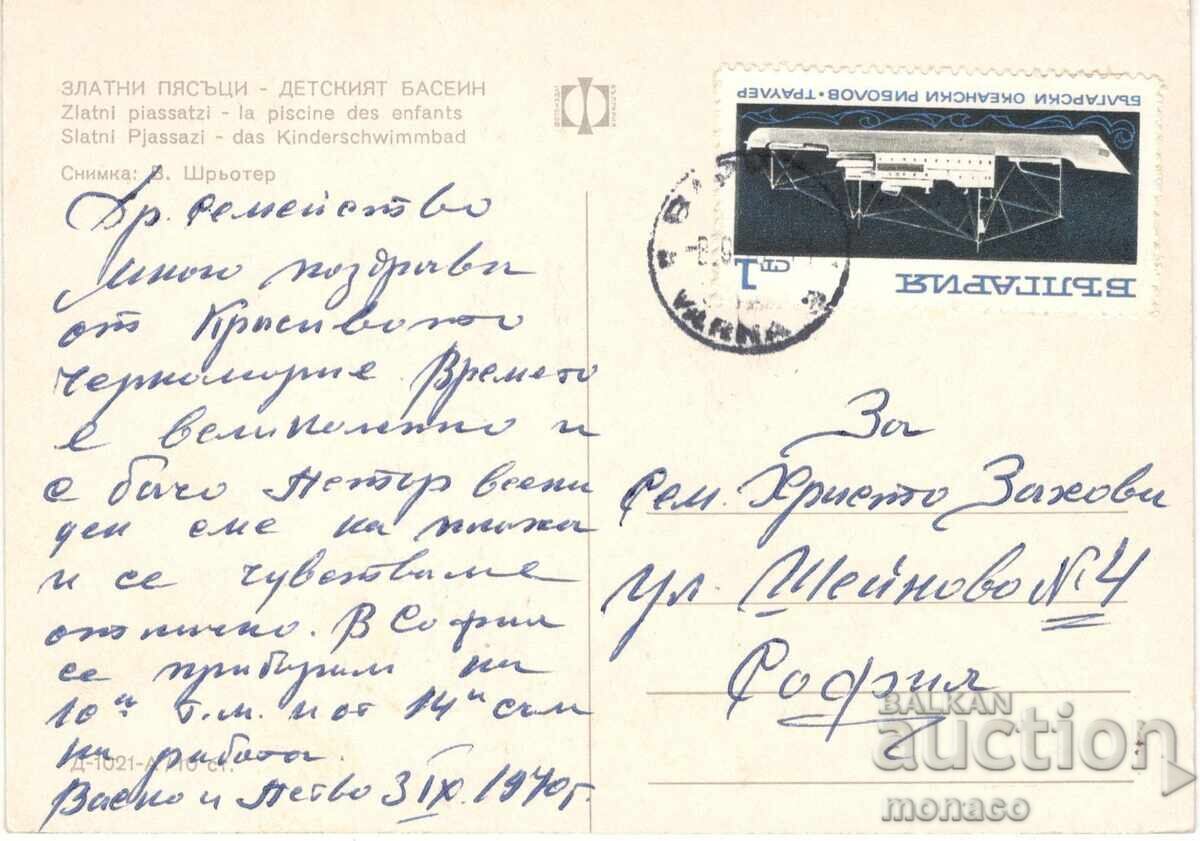 ЗЛАТНИ ПЯСЪЦИ - ДЕТСКИЯТ БАСЕИН
Zlatni piassatzi - la piscine des enfants
Slatni Pjassazi - das Kinderschwimmbad
Снимка: В. Шрьотер
Др. семейство
Много поздрави
от Красивото
черноморие. Времето
е великолепно и
с бачо Петър всеки
ден сме на плажа
и се чувстваме
отлично. В София
се прибирам на
10и т.м. и от 14и съм
на работа.
Д-1021-А
Васко и 3 IX. 1970 г.
БЪЛГАРСКИ ОКЕАНСКИ РИБОЛОВ • ТРАУЛЕР
1 СТ.
БЪЛГАРИЯ
VARNA
За
Сем. Христо Захови
ул. Шейново № 4
София
BALKAN
auction
monaco